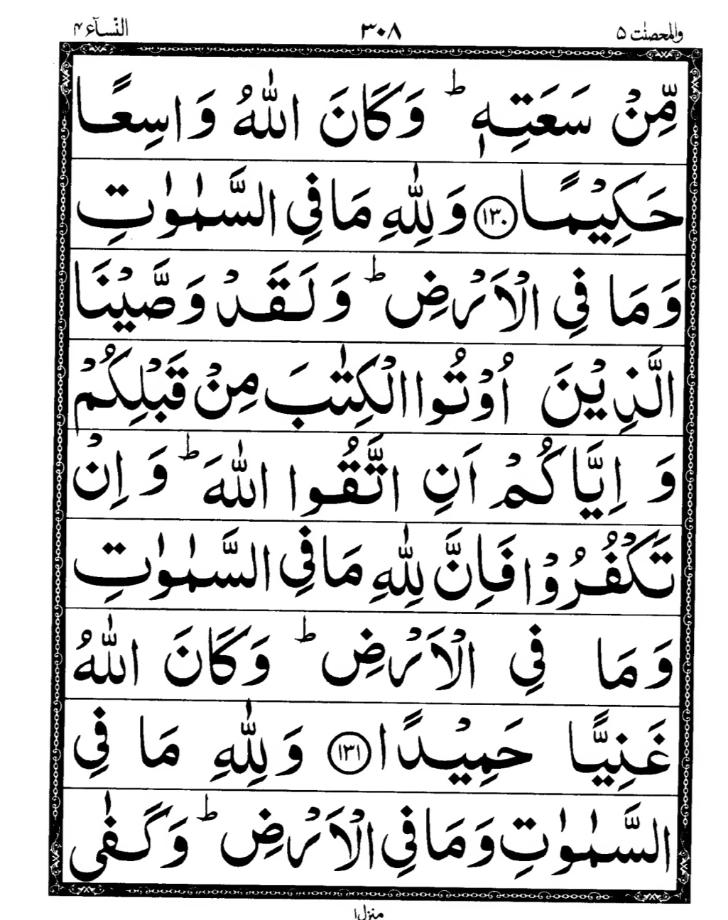 والمحصنت ۵ ۳۰۸ النسآء ۴
مِّنْ سَعَتِهٖ ؕ وَكَانَ اللّٰهُ وَاسِعًا
حَكِيْمًا ۝۱۳۰ وَلِلّٰهِ مَا فِي السَّمٰوٰتِ
وَمَا فِي الْاَرْضِ ؕ وَلَقَدْ وَصَّيْنَا
الَّذِيْنَ اُوْتُوا الْكِتٰبَ مِنْ قَبْلِكُمْ
وَ اِيَّاكُمْ اَنِ اتَّقُوا اللّٰهَ ؕ وَ اِنْ
تَكْفُرُوْا فَاِنَّ لِلّٰهِ مَا فِي السَّمٰوٰتِ
وَمَا فِي الْاَرْضِ ؕ وَكَانَ اللّٰهُ
غَنِيًّا حَمِيْدًا ۝۱۳۱ وَلِلّٰهِ مَا فِي
السَّمٰوٰتِ وَمَا فِي الْاَرْضِ ؕ وَكَفٰى
منزل ۱